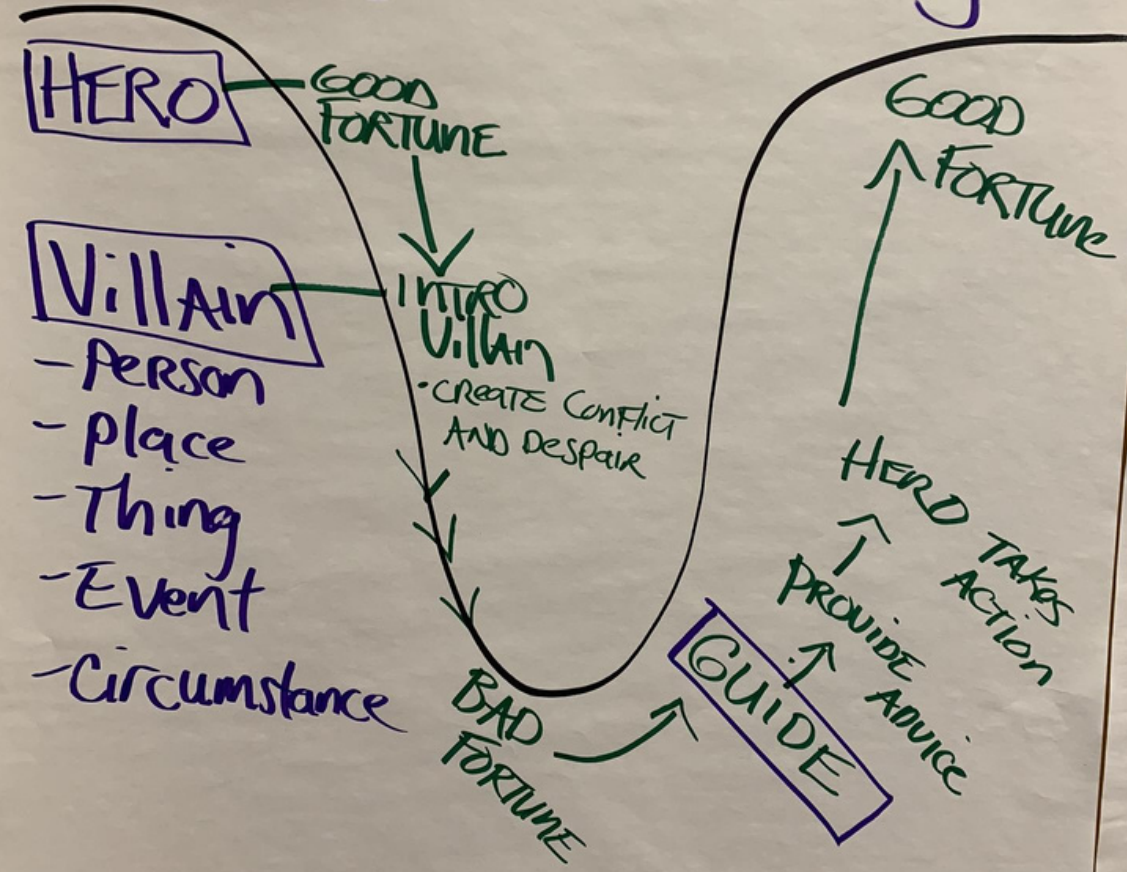 HERO
GOOD
FORTUNE
Villain
- Person
- Place
- Thing
- Event
- Circumstance
INTRO
Villain
• CREATE CONFLICT
AND DESPAIR
BAD
FORTUNE
GUIDE
PROVIDE ADVICE
HERO TAKES
ACTION
GOOD
FORTUNE